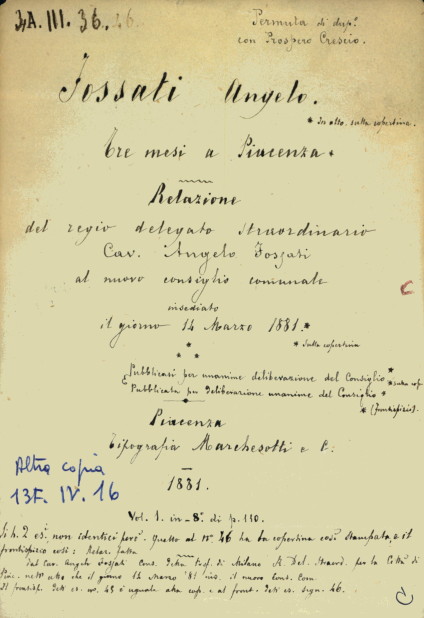 4A. III. 36. 46.
Permuta di dup.
con Prospero Crescio.
Fossati Angelo.
* In alto, sulla copertina.
Tre mesi a Piacenza *
Relazione
del regio delegato straordinario
Cav. Angelo Fossati
al nuovo consiglio comunale
insediato
il giorno 14 Marzo 1881. *
* Sulla copertina
Pubblicasi per unanime deliberazione del Consiglio * sulla cop
Pubblicata per deliberazione unanime del Consiglio *
* (frontispizio).
Piacenza
Tipografia Marchesotti e C.
1881.
Altra copia
13F. IV. 16
Vol. 1. in-8º di p. 110.
Si h. 2 es. non identici perchè Quello al nº 46 ha la copertina così stampata, e il
frontispizio così: Relaz. fatta
dal Cav. Angelo Fossati Cons. di Milano R. Del. Straord. per la Città di
Piac. nell' atto che il giorno 14 Marzo '81 ins. il nuovo Cons. Com.
Il frontisp. è uguale alla cop. e al front. segn. 46.